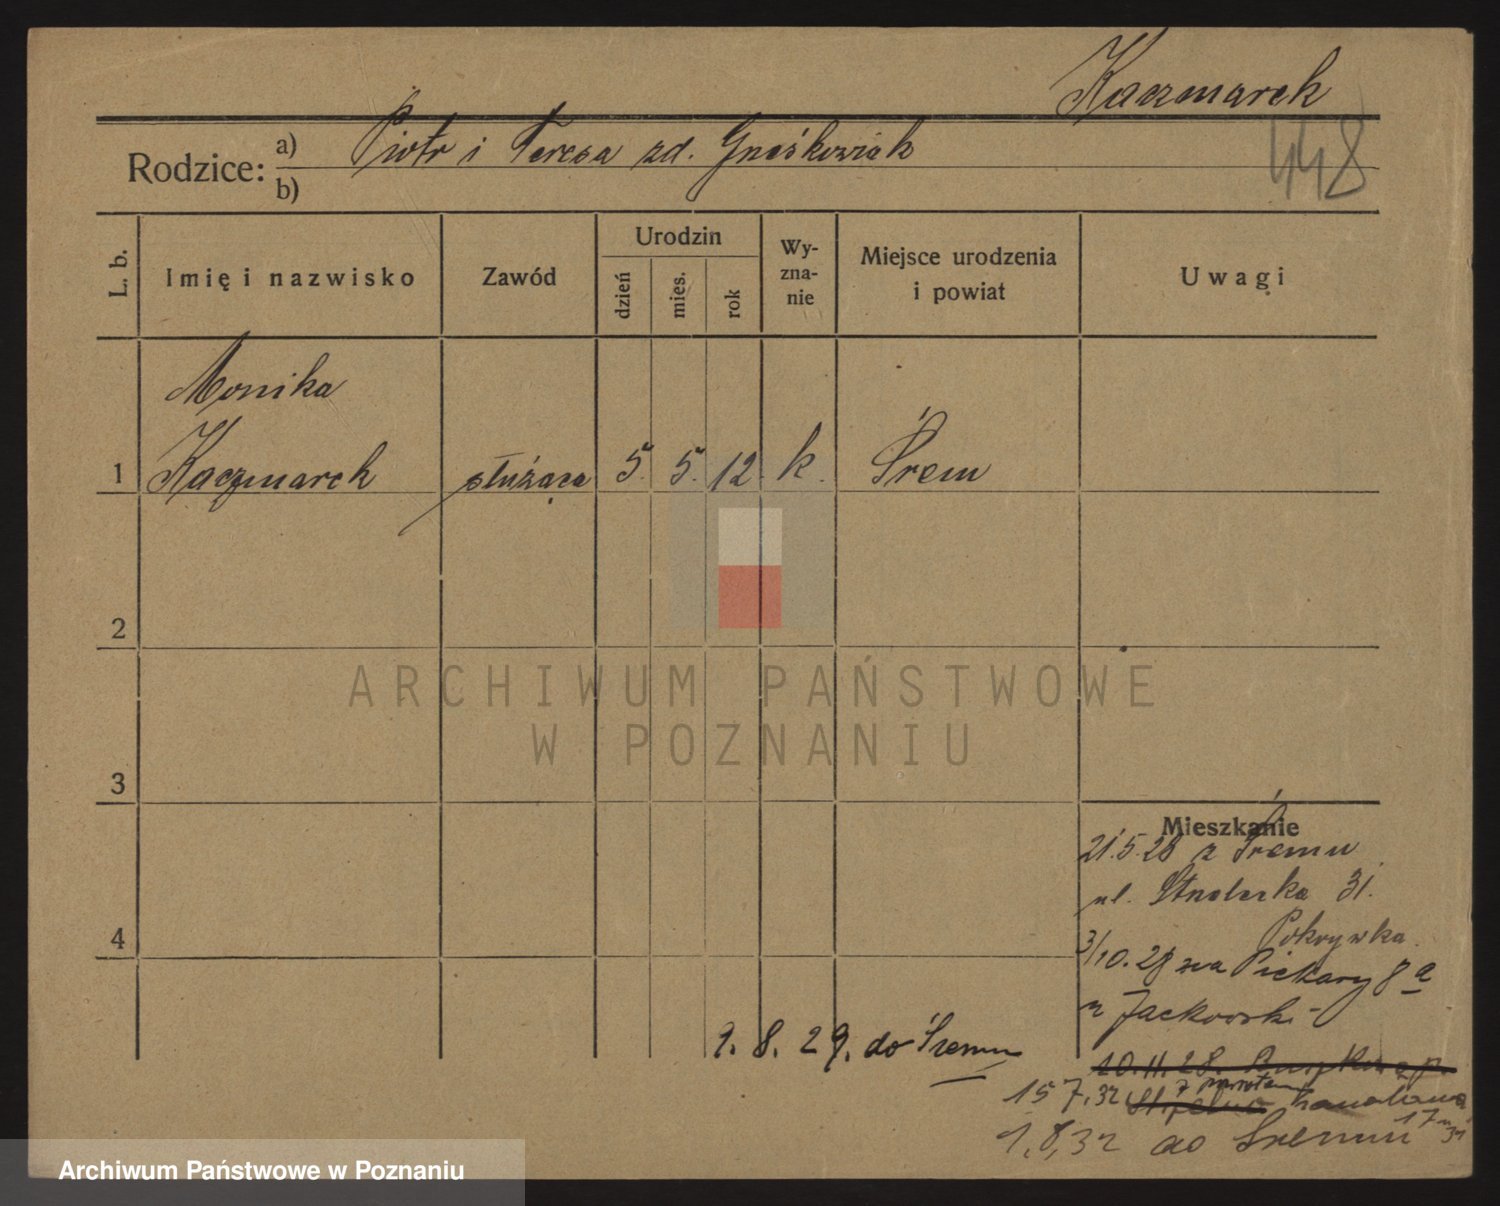 Kaczmarek
448
Rodzice: a) Piotr i Teresa zd. Gnośkowiak
b)
L. b. Imię i nazwisko Zawód Urodzin dzień mies. rok Wy-zna-nie Miejsce urodzenia i powiat Uwagi
Monika
1 Kaczmarek służąca 5. 5. 12. k. Śrem
2
3
4
Mieszkanie
21.5.28 z Śremu
ul. Strzelecka 31.
Pokrywka
3/10.28 na Piekary 8 a
u Jackowski
9. 8. 29. do Śremu
20.11.28.
15 7.32 z powrotem
1.8.32 do Śremu
ARCHIWUM PAŃSTWOWE
W POZNANIU
Archiwum Państwowe w Poznaniu